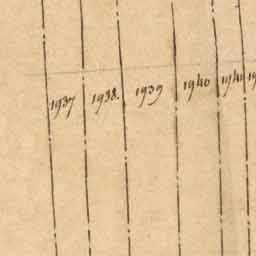 1937 1938. 1939 1940 1941